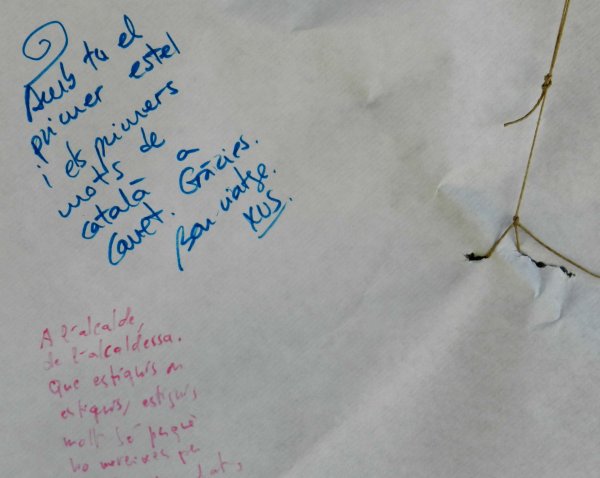 Amb tu el
primer estel
i els primers
mots de
català a
Canet. Gràcies.
Bon viatge.
XUS.
A l'alcalde,
de l'alcaldessa.
Que estiguis on
estiguis, estiguis
molt bé perquè
ho mereixes per